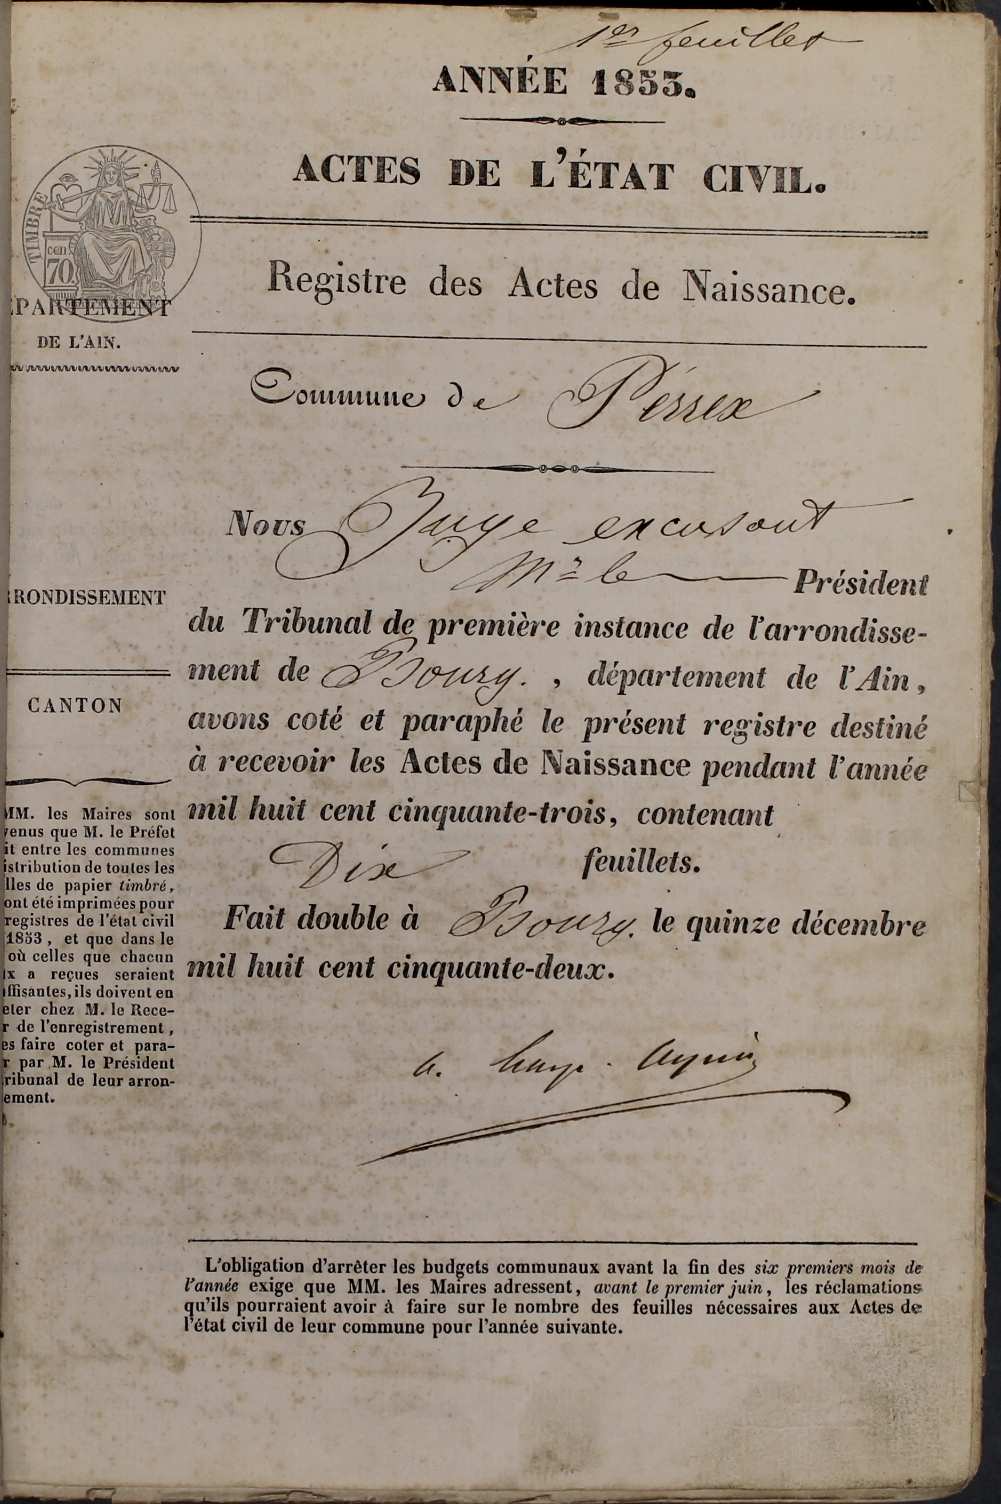 1er feuillet
ANNÉE 1853.
ACTES DE L'ÉTAT CIVIL.
TIMBRE
cen
70
Registre des Actes de Naissance.
ÉPARTEMENT
DE L'AIN.
Commune de Pérrex
Nous Juge excusant
Mr le Président
du Tribunal de première instance de l'arrondisse-
ment de Bourg. , département de l'Ain,
avons coté et paraphé le présent registre destiné
à recevoir les Actes de Naissance pendant l'année
mil huit cent cinquante-trois, contenant
Dix feuillets.
Fait double à Bourg. le quinze décembre
mil huit cent cinquante-deux.
RRONDISSEMENT
CANTON
MM. les Maires sont
venus que M. le Préfet
it entre les communes
istribution de toutes les
lles de papier timbré,
ont été imprimées pour
registres de l'état civil
1853, et que dans le
où celles que chacun
x a reçues seraient
ffisantes, ils doivent en
eter chez M. le Rece-
r de l'enregistrement,
es faire coter et para-
r par M. le Président
ribunal de leur arron-
ement.
L'obligation d'arrêter les budgets communaux avant la fin des six premiers mois de
l'année exige que MM. les Maires adressent, avant le premier juin, les réclamations
qu'ils pourraient avoir à faire sur le nombre des feuilles nécessaires aux Actes de
l'état civil de leur commune pour l'année suivante.